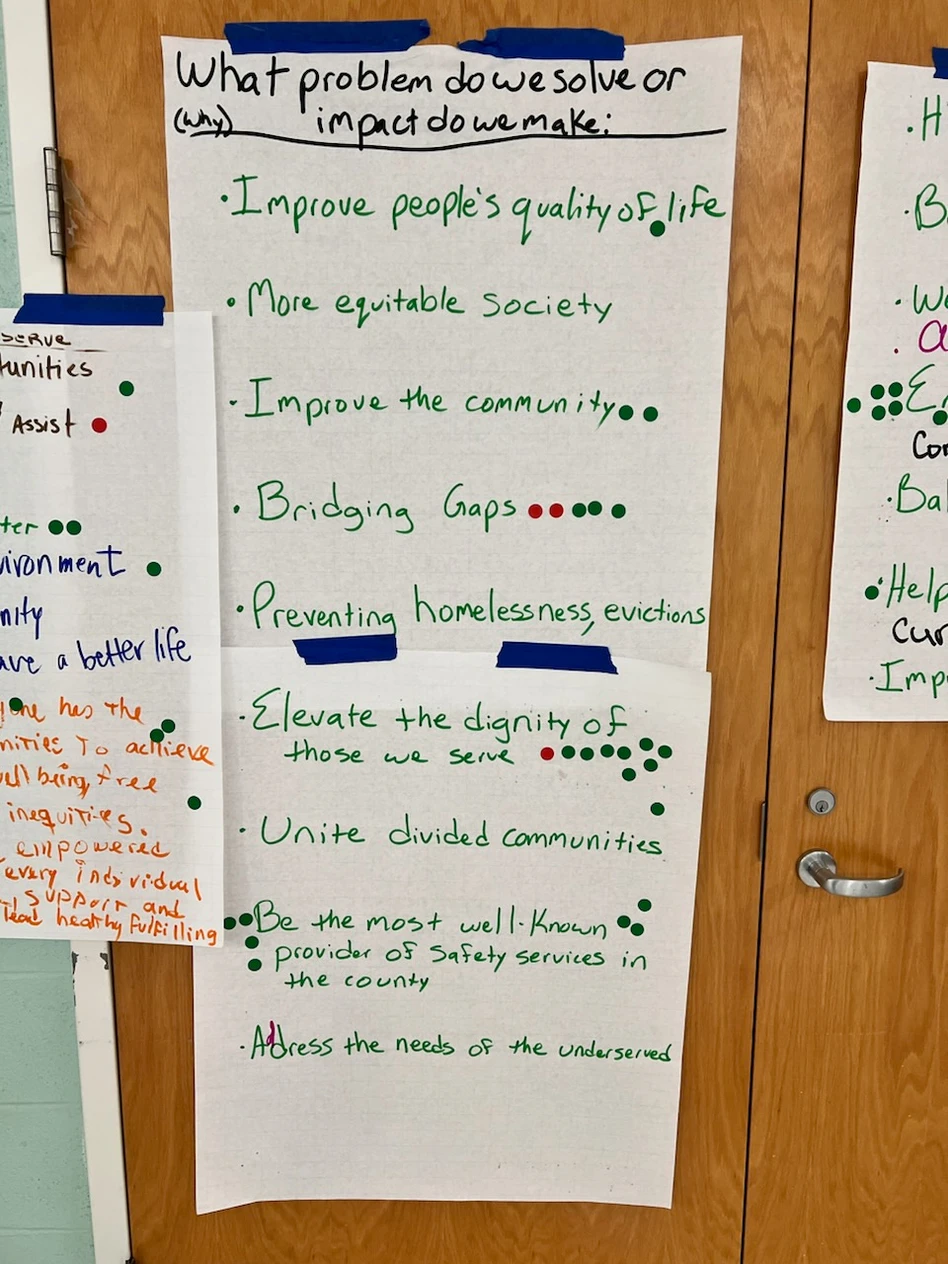 What problem do we solve or
(Why) impact do we make:
• Improve people's quality of life
• More equitable Society
• Improve the community
• Bridging Gaps
• Preventing homelessness, evictions
• Elevate the dignity of
those we serve
• Unite divided communities
• Be the most well-known
provider of safety services in
the county
• Address the needs of the underserved
SERVE
Assist
a better life
has the
To achieve
being, free
inequities.
empowered
every individual
support and
lead healthy fulfilling
• H
• B
• We
• Help
• Imp